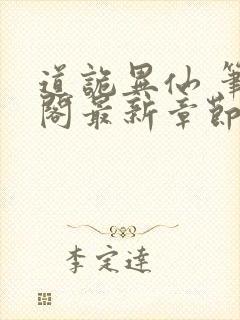 道詭異仙 筆
閣最新章節
李定達